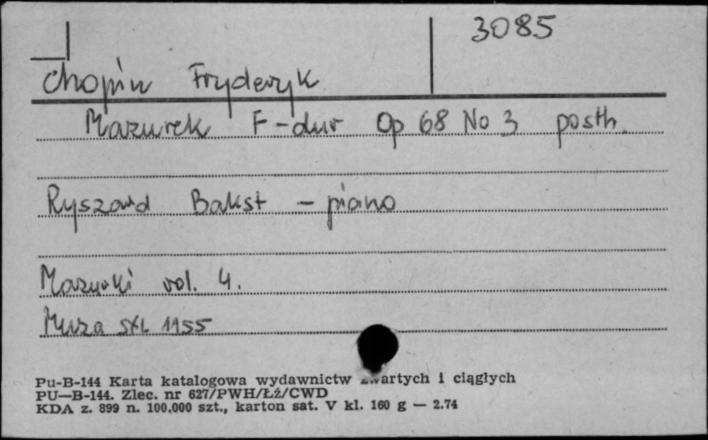 3085
Chopin Fryderyk
Mazurek F-dur Op 68 No 3 posth.
Ryszard Bakst - piano
Mazurki vol. 4.
Muza SXL 1155
Pu-B-144 Karta katalogowa wydawnictw zwartych i ciągłych
PU—B-144. Zlec. nr 627/PWH/Łż/CWD
KDA z. 899 n. 100.000 szt., karton sat. V kl. 160 g — 2.74